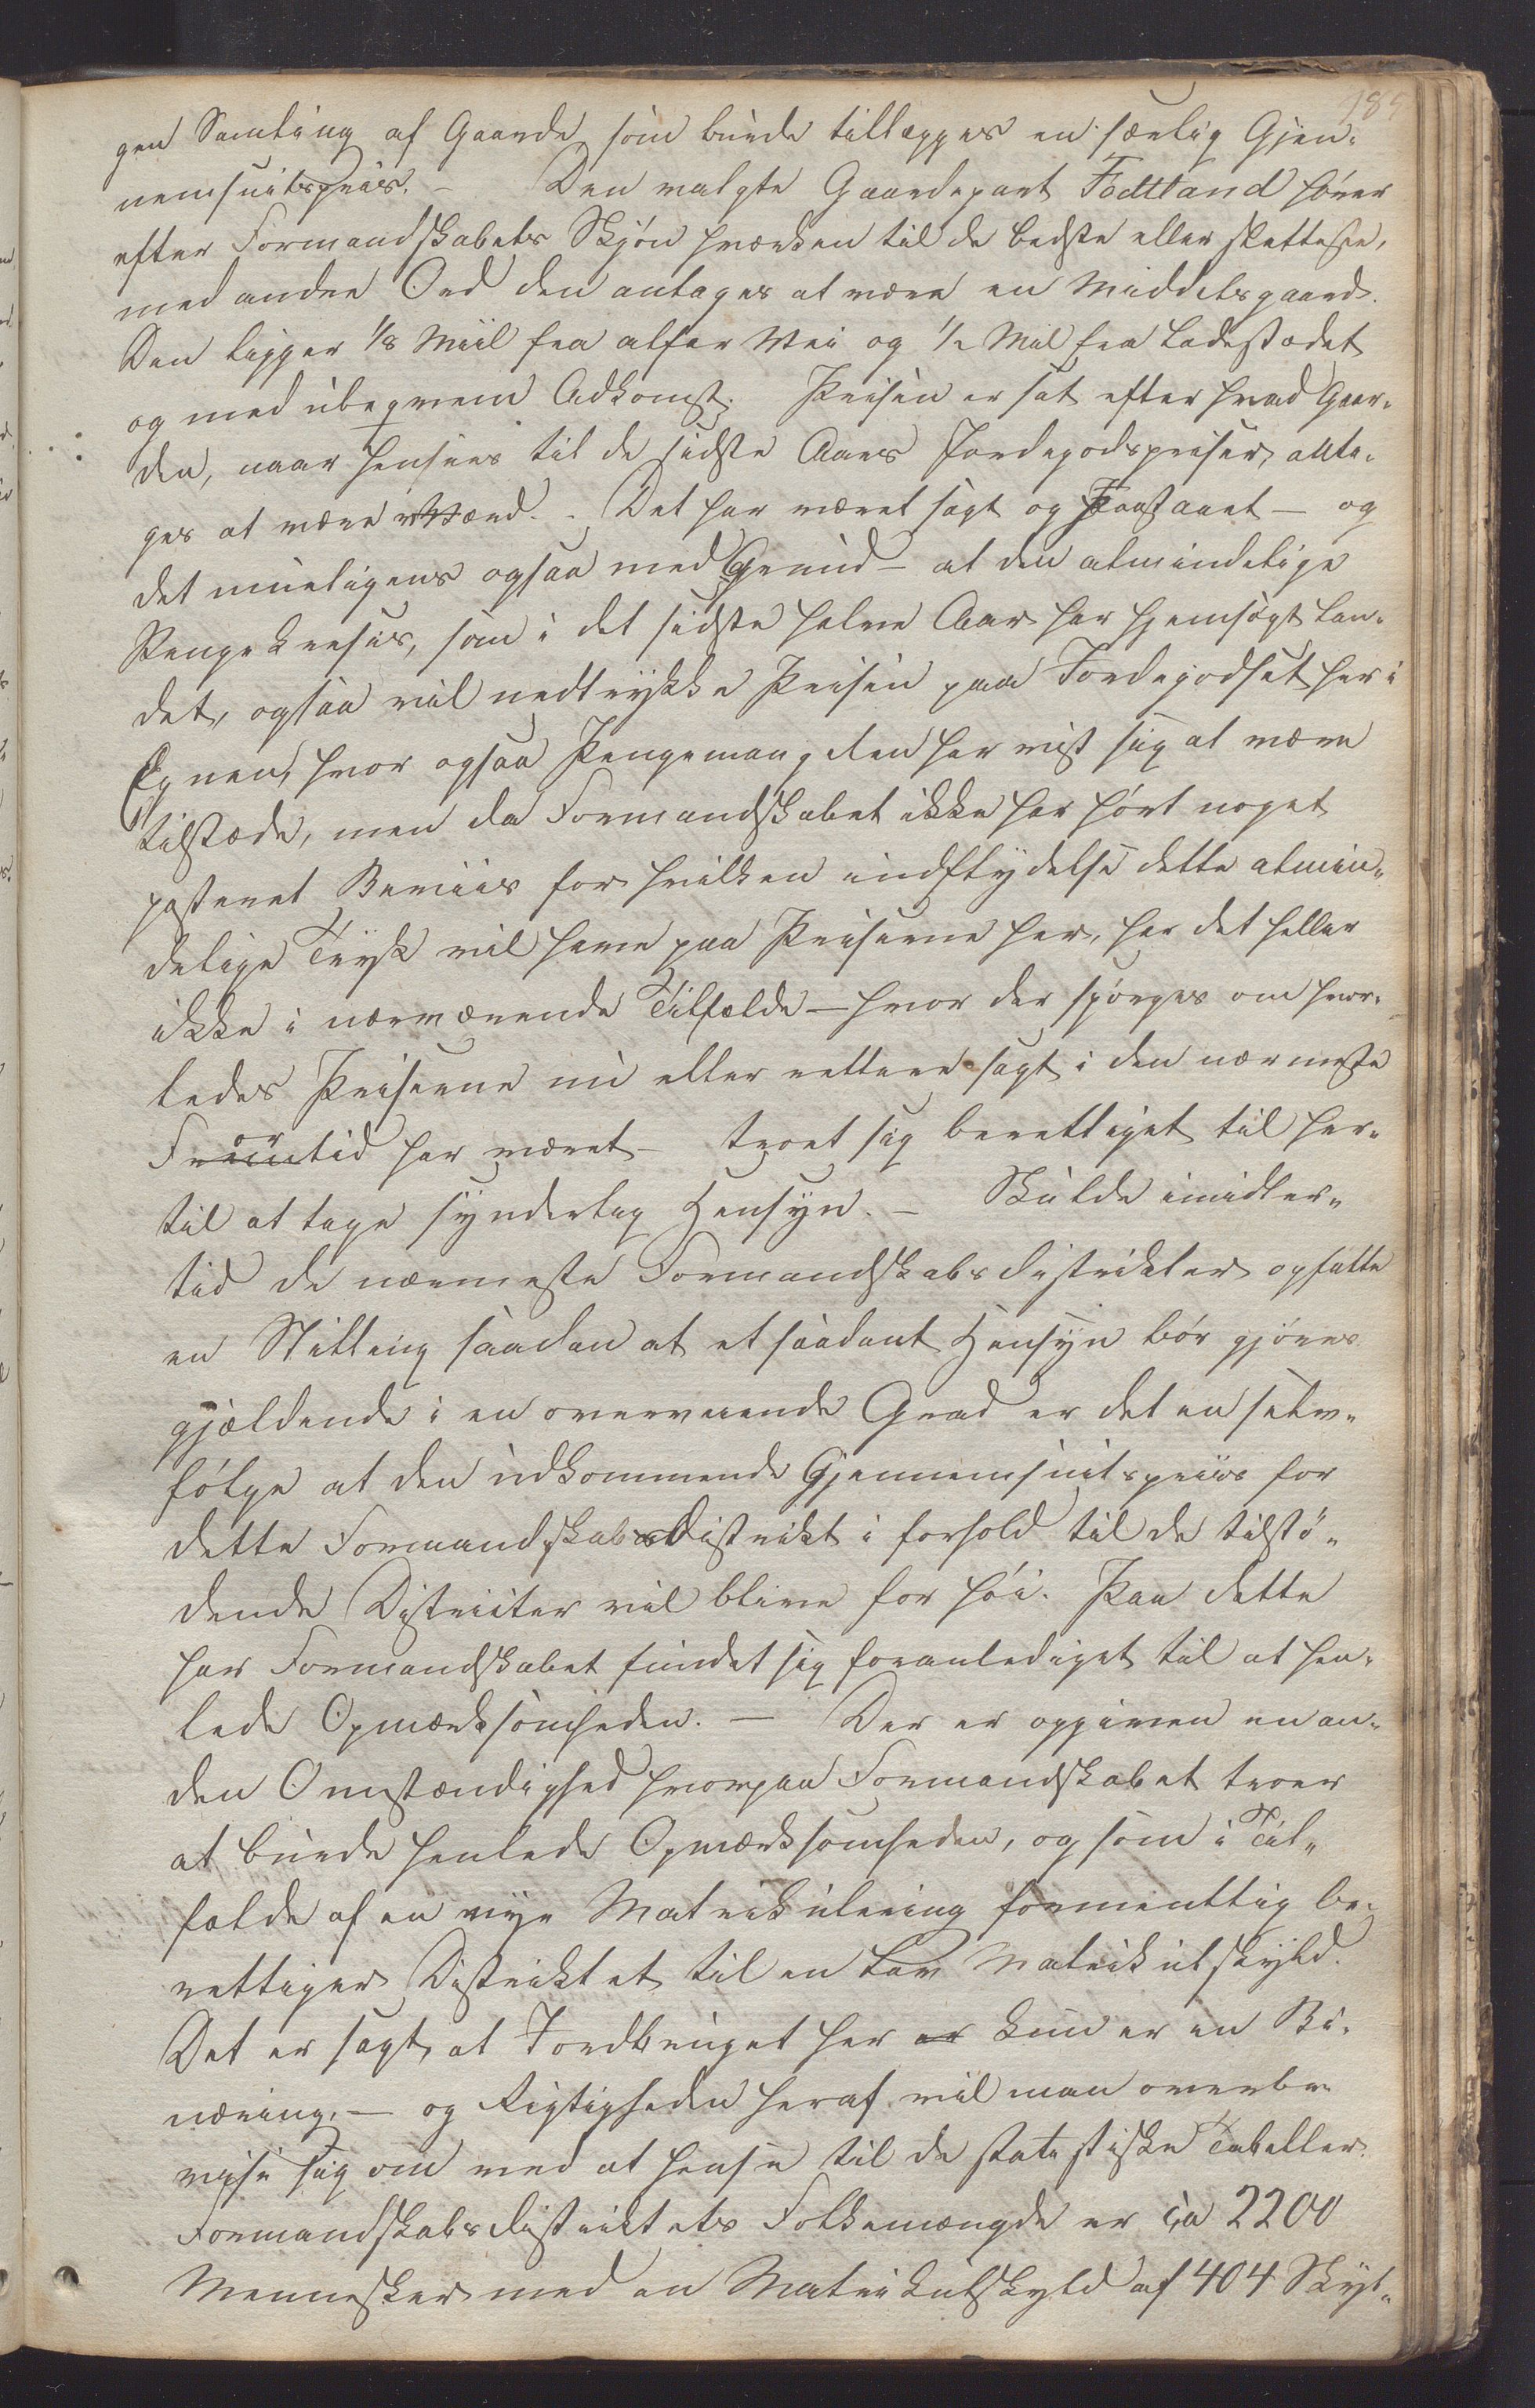 185
gen Samling af Gaarde, som burde tillægges en særlig Gjen-
nemsnitspriis. – Den valgte Gaardepart Fodtland hører
efter Formandskabets Skjøn hverken til de bedste eller sletteste,
med andre Ord den antages at være en Middelsgaard.
Den ligger 1/8 Miil fra alfar Vei og 1/2 Mil fra Ladestedet
og med ubeqvem Adkomst. Prisen er sat efter hvad Gaar-
den, naar hensees til de sidste Aars Jordegodspriser, anta-
ges at være værd. – Det har været sagt og paastaaet – og
det mueligens ogsaa med Grund – at den almindelige
Pengekrisis, som i det sidste halve Aar har hjemsøgt Lan-
det, ogsaa vil nedtrykke Prisen paa Jordegodset her i
Egnen, hvor ogsaa Pengemangelen har viist sig at være
tilstæde, men da Formandskabet ikke har hørt noget
positivt Beviis for hvilken indflydelse dette almin-
delige Tryk vil have paa Priserne her, har det heller
ikke i nærværende Tilfælde – hvor der spørges om hvor-
ledes Priserne nu eller rettere sagt i den nærmeste
Fortid har været – troet sig berettiget til her-
til at tage synderlig Hensyn. – Skulde imidler-
tid de nærmeste Formandskabsdistrikter opfatte
en Stilling saadan at et saadant Hensyn bør gjøres
gjældende i en overveiende Grad er det en selv-
følge at den udkommende Gjennemsnitspriis for
dette Formandskabsdistrikt i forhold til de tilstø-
dende Districter vil blive for høi. Paa dette
har Formandskabet fundet sig foranlediget til at hen-
lede Opmærksomheden. – Der er opgiven en an-
den Omstændighed hvorpaa Formandskabet troer
at burde henlede Opmærksomheden, og som i Til-
fælde af en nye Matrikulering formentlig be-
rettiger Distriktet til en lav Matrikulskyld.
Det er sagt, at Jordbruget her er kun er en Bi-
næring, – og Rigtigheden heraf vil man overbe-
vise sig om ved at hense til de statistiske Tabeller.
Formandskabsdistriktets Folkemængde er ca 2200
Mennesker med en Matrikulskyld af 404 Skyl-